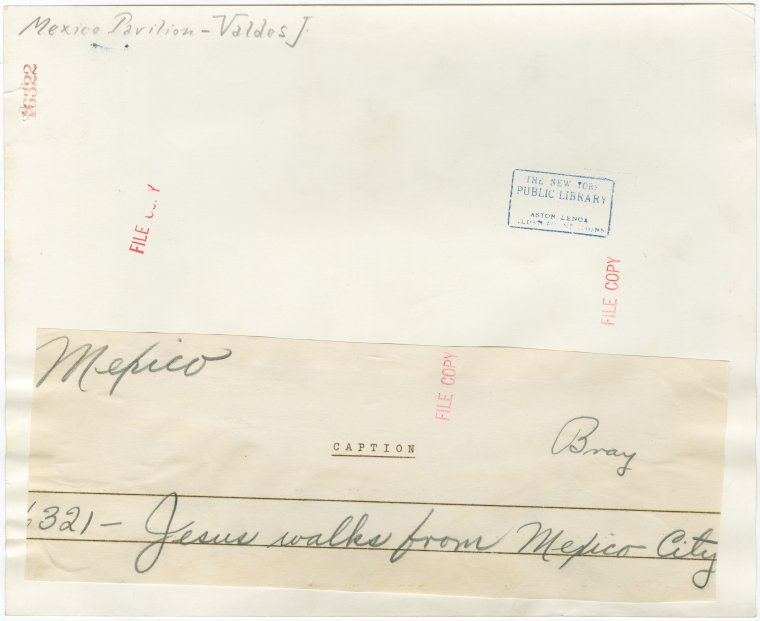 Mexico Pavilion - Valdes J.
16322
FILE
THE NEW YORK
PUBLIC LIBRARY
ASTOR LENOX
FILE COPY
Mexico
FILE COPY
CAPTION
Bray
6321- Jesus walks from Mexico City